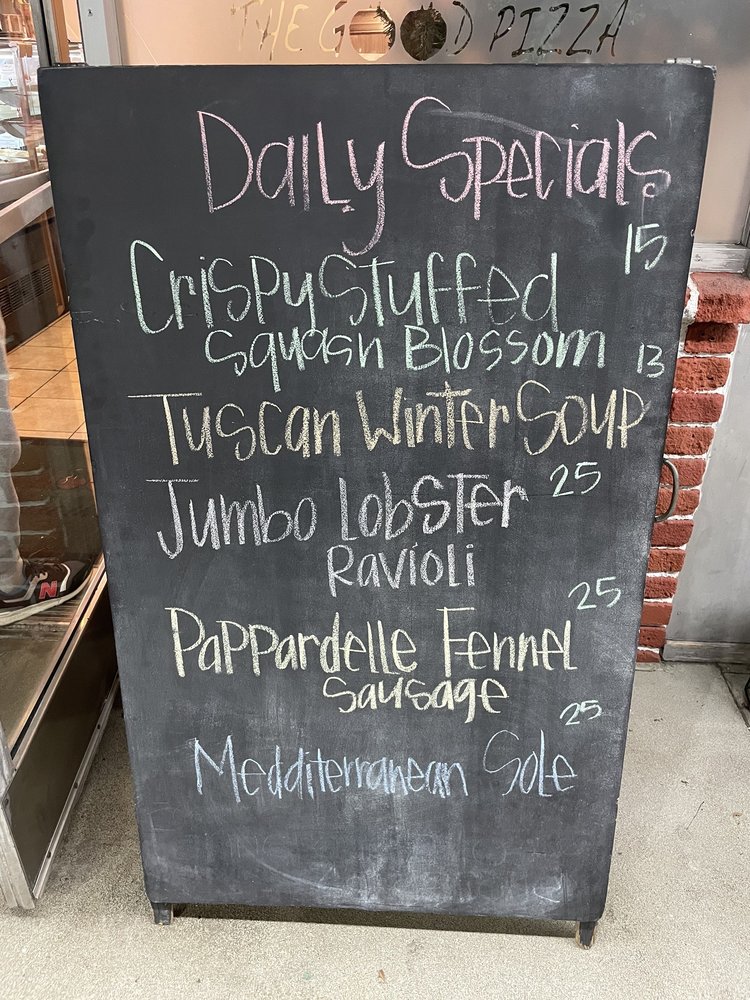 THE GOOD PIZZA
Daily Specials
15
Crispy Stuffed
Squash Blossom
13
Tuscan Winter Soup
25
Jumbo Lobster
Ravioli
25
Pappardelle Fennel
Sausage
25
Medditerranean Sole
N